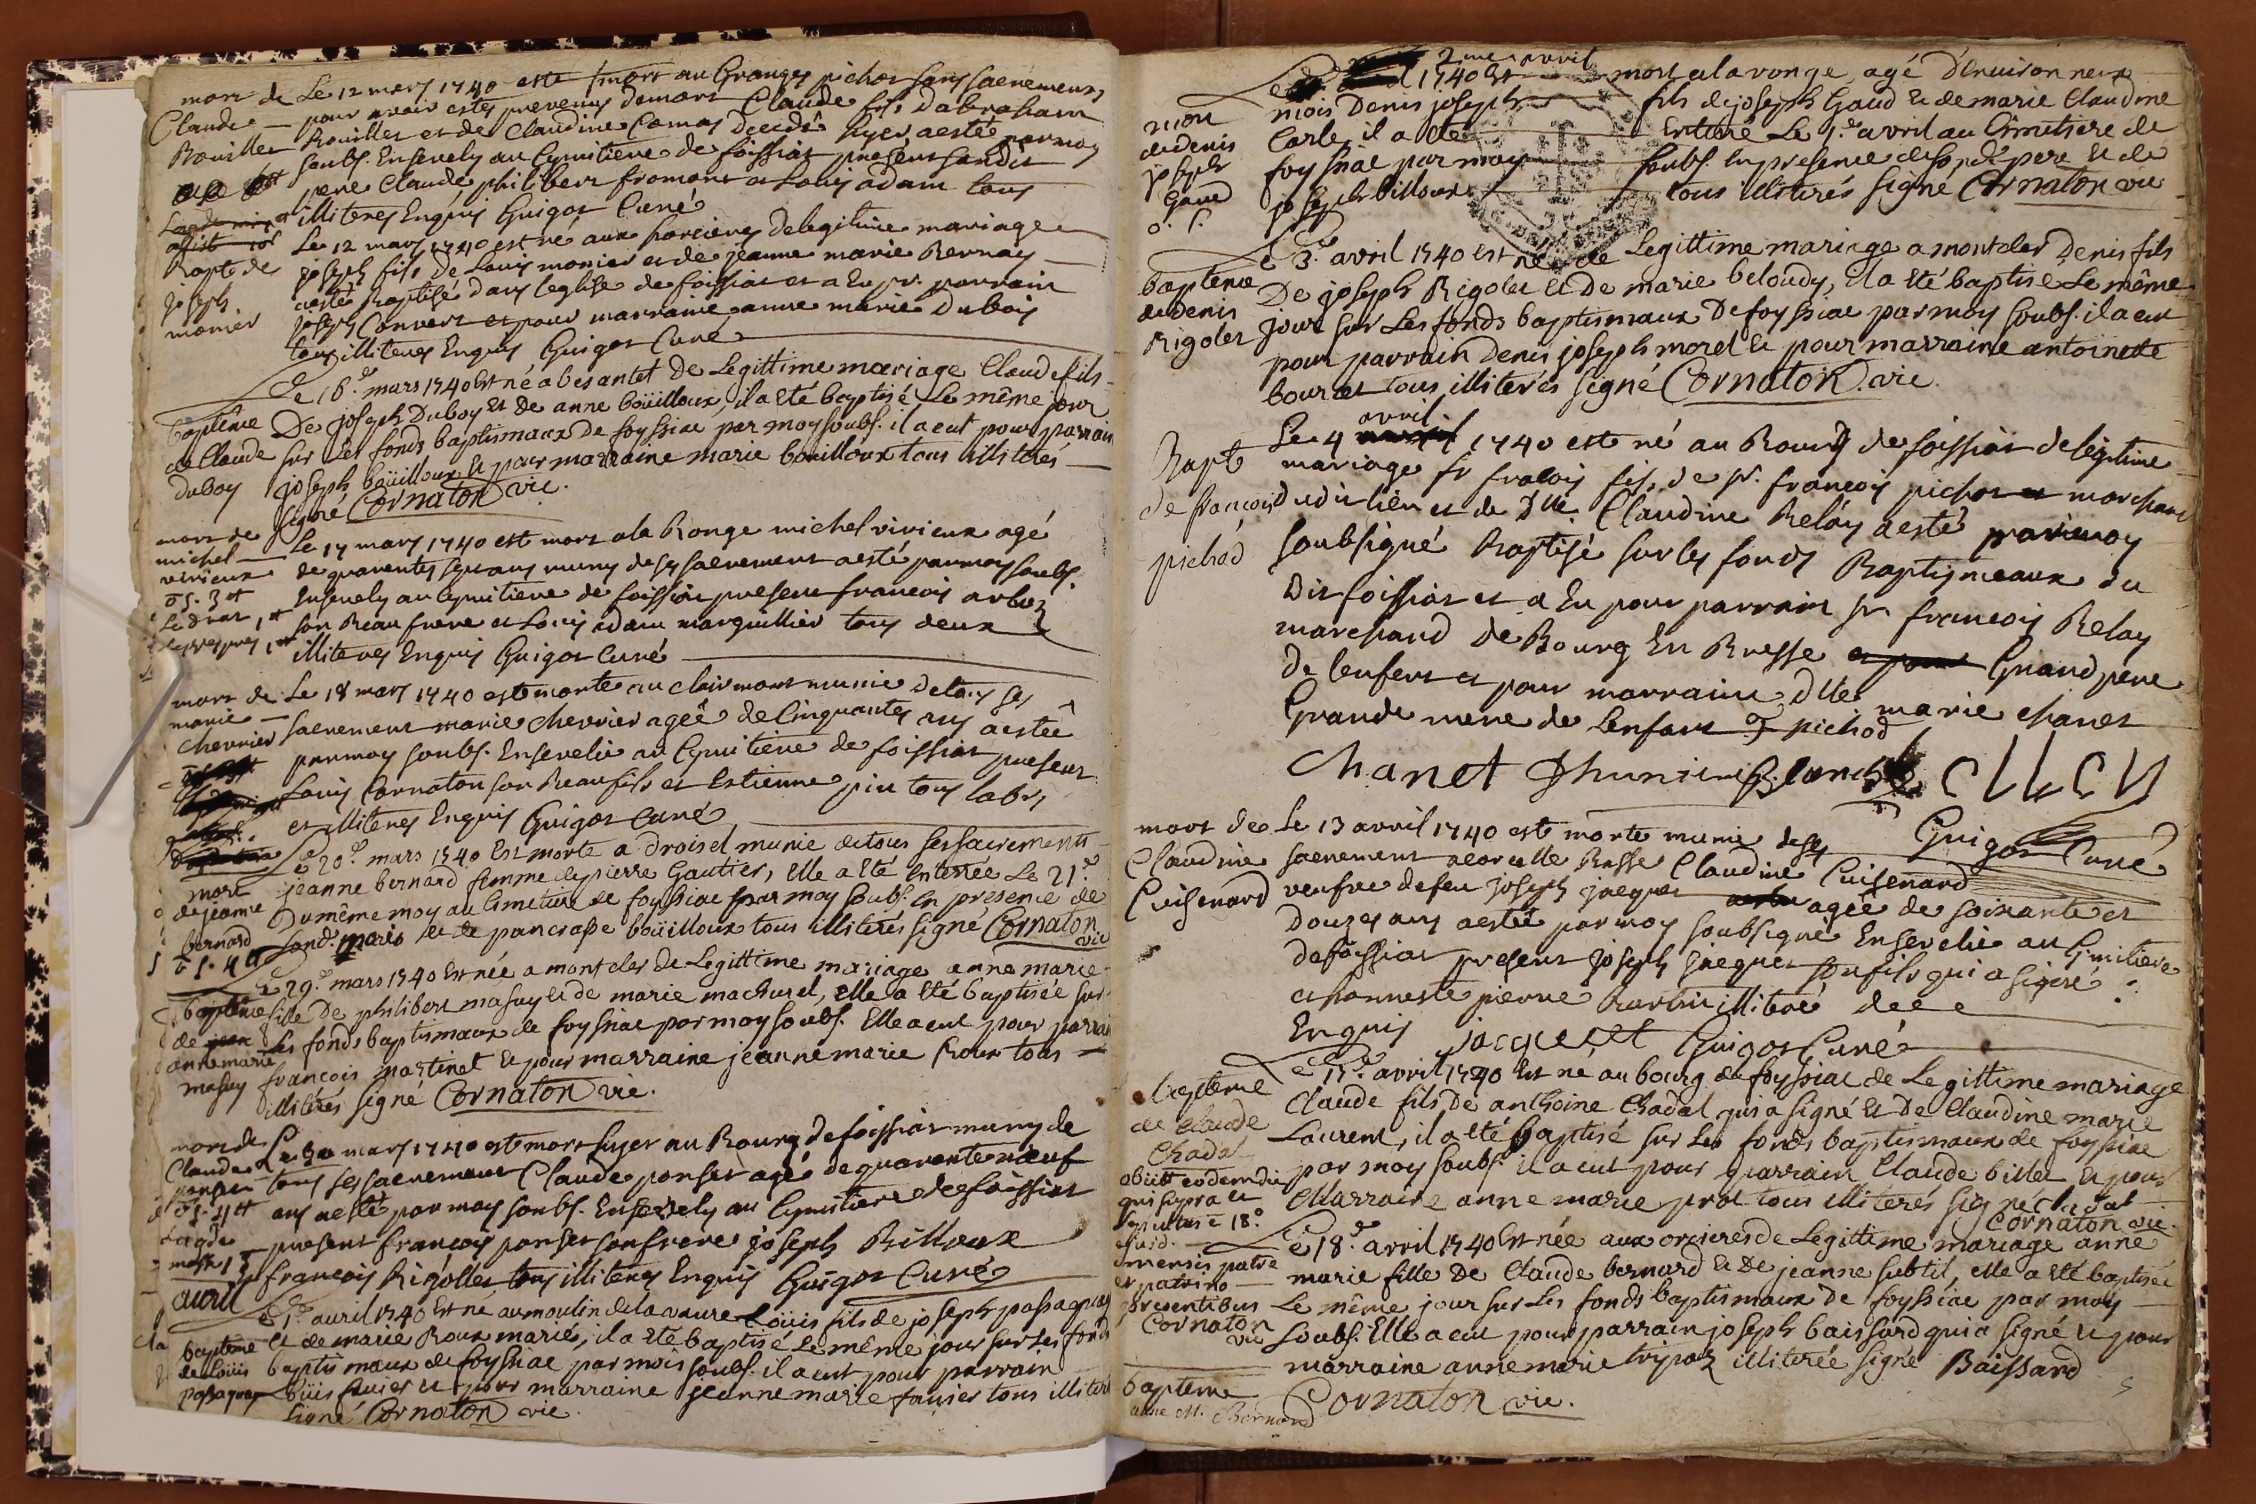 mort de
Claude
Bouillet
Le 12 mars 1740 este mort au Granges pichot sans sacremens
pour avoir estes prevenus demort Claude fils dabraham
Bouillet et de Claudine Comas decedé hyer aesté parmoy
soubs. Ensevely au Cymitiere de foissiat present sondit
pere Claude philibert fromont et Louis adam tous
illiteres Enquis Guigot Curé
Bapt de
joseph
monier
Le 12 mars 1740 est né aux delegitime mariage
joseph fils de Louis monier et de jeanne marie Bernay
aesté Baptisé dans leglise de foissiat et a Eu pr. parrain
joseph Convert et pour marraine anne marie Dubois
tous illiteres Enquis Guigot Curé
baptême
de Claude
duboy
Le 16e mars 1740 Est né a besantet De Legittime mariage Claude fils
De joseph Duboy Et De anne boüilloux, il a Eté baptisé Le même jour
sur Les fonds baptismaux de foyssiac par moy soubs. il a eut pour parrain
joseph boüilloux Et pour marraine marie bouilloux tous illiterés
signé Cornaton vic.
mort de
michel
vivieux
Le 17 mars 1740 est mort ala Ronge michel vivieux agé
de quarentes sept ans muny deses sacrement aesté parmoy soubs.
Ensevely au Cymitiere de foissiat present francois arboz
son Beau frere et Louis adam marguillier tous deux
illiteres Enquis Guigot Curé
mort de
marie
chevrier
Le 18 mars 1740 est morte au clairmont munie De tous ses
sacrement marie chevrier agée de Cinquantes ans aestée
par moy soubs. Ensevelie au Cymitiere de foissiat present
Louis Cornaton son Beaufils et Estienne piu tous labrs
et illiteres Enquis Guigot Curé
mort
de jeanne
bernard
Le 20e mars 1740 Est morte a droisel munie de tous ses sacrements
jeanne bernard femme de pierre Gautier, Elle a Eté Enterrée Le 21e
Du même moy au Cimetiere de foyssiac par moy soubs. En presence de
sond. maris et de pancrasse boüilloux tous illiterés signé Cornaton vic
baptême
de jean
anne marie
masuy
Le 29e mars 1740 Est née a montcler De Legittime mariage anne marie
fille De philibert masuy Et de marie machurel, Elle a Eté baptisée sur
Les fonds baptismaux de foyssiac par moy soubs. Elle a eut pour parrain
françois martinet Et pour marraine jeanne marie Roux tous
illiterés signé Cornaton vic.
mort de
Claude
ponset
Le 30 mars 1740 est mort hyer au Bourg de foissiat muny de
tous ses sacrement Claude ponset agé de quarente neuf
ans aesté par moy soubs. Ensevely au Cymitiere de foissiat
present francois ponset son frere joseph Billoux
francois Rigollet tous illiteres Enquis Guigot Curé
avril
baptême
de Loüis
passaquay
Le 1e avril 1740 Est né au moulin de la vavre Loüis fils de joseph passaquay
Et de marie Roux mariés, il a Eté baptisé Le même jour sur Les fonds
baptismaux de foyssiac par mois soubs. il a eut pour parrain
Loüis favier Et pour marraine jeanne marie favier tous illiterés
signé Cornaton vic.
mort
de denis
joseph
Gaud
2me avril
Le 1740 Est mort a la ronge, agé D'Environ neuf
mois Denis joseph fils de joseph Gaud Et de marie Claudine
Carle, il a Eté Enterré Le 1e avril au Cimetiere de
foyssiac par moy soubs. En presence de sond. pere Et de
joseph billoux tous illiterés signé Cornaton vic
baptême
de denis
Rigolet
Le 3e avril 1740 Est né de Legittime mariage a montcler Denis fils
De joseph Rigolet Et De marie beloudy, il a Eté baptisé Le même
jour sur Les fonds baptismaux De foyssiac par moy soubs. il a eut
pour parrain Denis joseph morel Et pour marraine antoinette
bouret tous illiterés signé Cornaton vic
Bapt
de francois
pichod
avril
Le 4 1740 este né au Bourg de foissiat delegitime
mariage sr francois fils de sr. francois pichot et marchant
dudit lieu et de Dlle. Claudine Relay aesté par moy
soubsigné Baptisé sur les fonds Baptismeaux du
dit foissiat et a Eu pour parrain sr francois Relay
marchand de Bourg En Bresse et pour Grand pere
de lenfent et pour marraine dlle marie chanet
Grande mere de Lenfant pichod
Chanet
Guigot Curé
mort de
Claudine
Cuisenard
Le 13 avril 1740 este morte munie deses
sacrement Basse Claudine Cuisenard
veufve de feu joseph jacquet agée de soixante et
Douzes ans aesté par moy soubsigné Ensevelie au Cymitiere
de foissiat present joseph jacquet son fils qui a signé
et honneste pierre illiteré de ce
Enquis jacquet Guigot Curé
baptême
de Claude
Chadal
obiit eodem die
qui supra et
sepultus e 18o
ejusd.
mensis patre
et patrino
presentibus
Cornaton
vic
Le 17e avril 1740 Est né au bourg de foyssiac de Legittime mariage
Claude fils De anthoine Chadal qui a signé Et De Claudine marie
Laurent, il a Eté baptisé sur Les fonds baptismaux de foyssiac
par moy soubs. il a eut pour parrain Claude billet Et pour
Marraine anne marie prot tous illiterés signé Chadal
Cornaton vic.
Le 18e avril 1740 Est née aux orcieres de Legittime mariage anne
marie fille De Claude bernard Et De jeanne subtil, elle a Eté baptisée
Le même jour sur Les fonds baptismaux de foyssiac par moy
soubs. Elle a eut pour parrain joseph baissard qui a signé Et pour
marraine anne marie tripoz illiterée signé Baissard
Cornaton vic.
baptême
anne M. Bernard